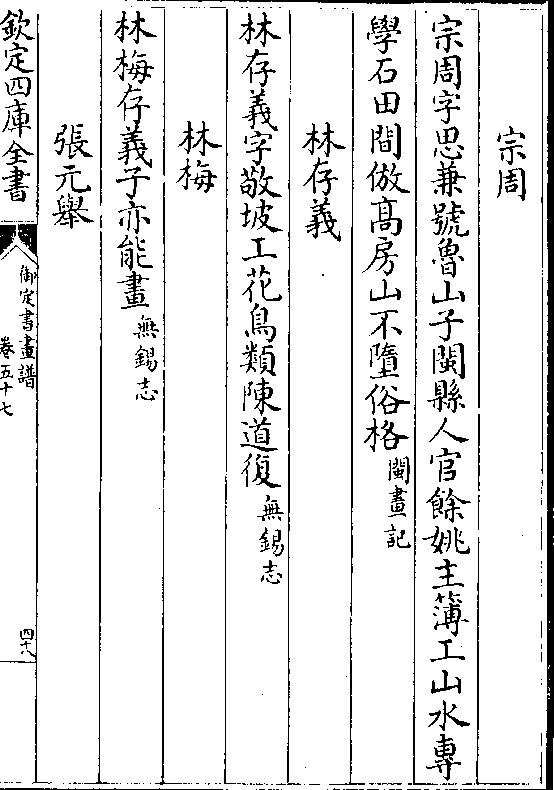 宗周
宗周字思兼號魯山子閩縣人官餘姚主簿工山水專
學石田間倣髙房山不墮俗格閩畫記
林存義
林存義字敬坡工花鳥類陳道復無錫志
林梅
林梅存義子亦能畫無錫志
張元舉
欽定四庫全書
御定書畫譜
卷五十七
四十八